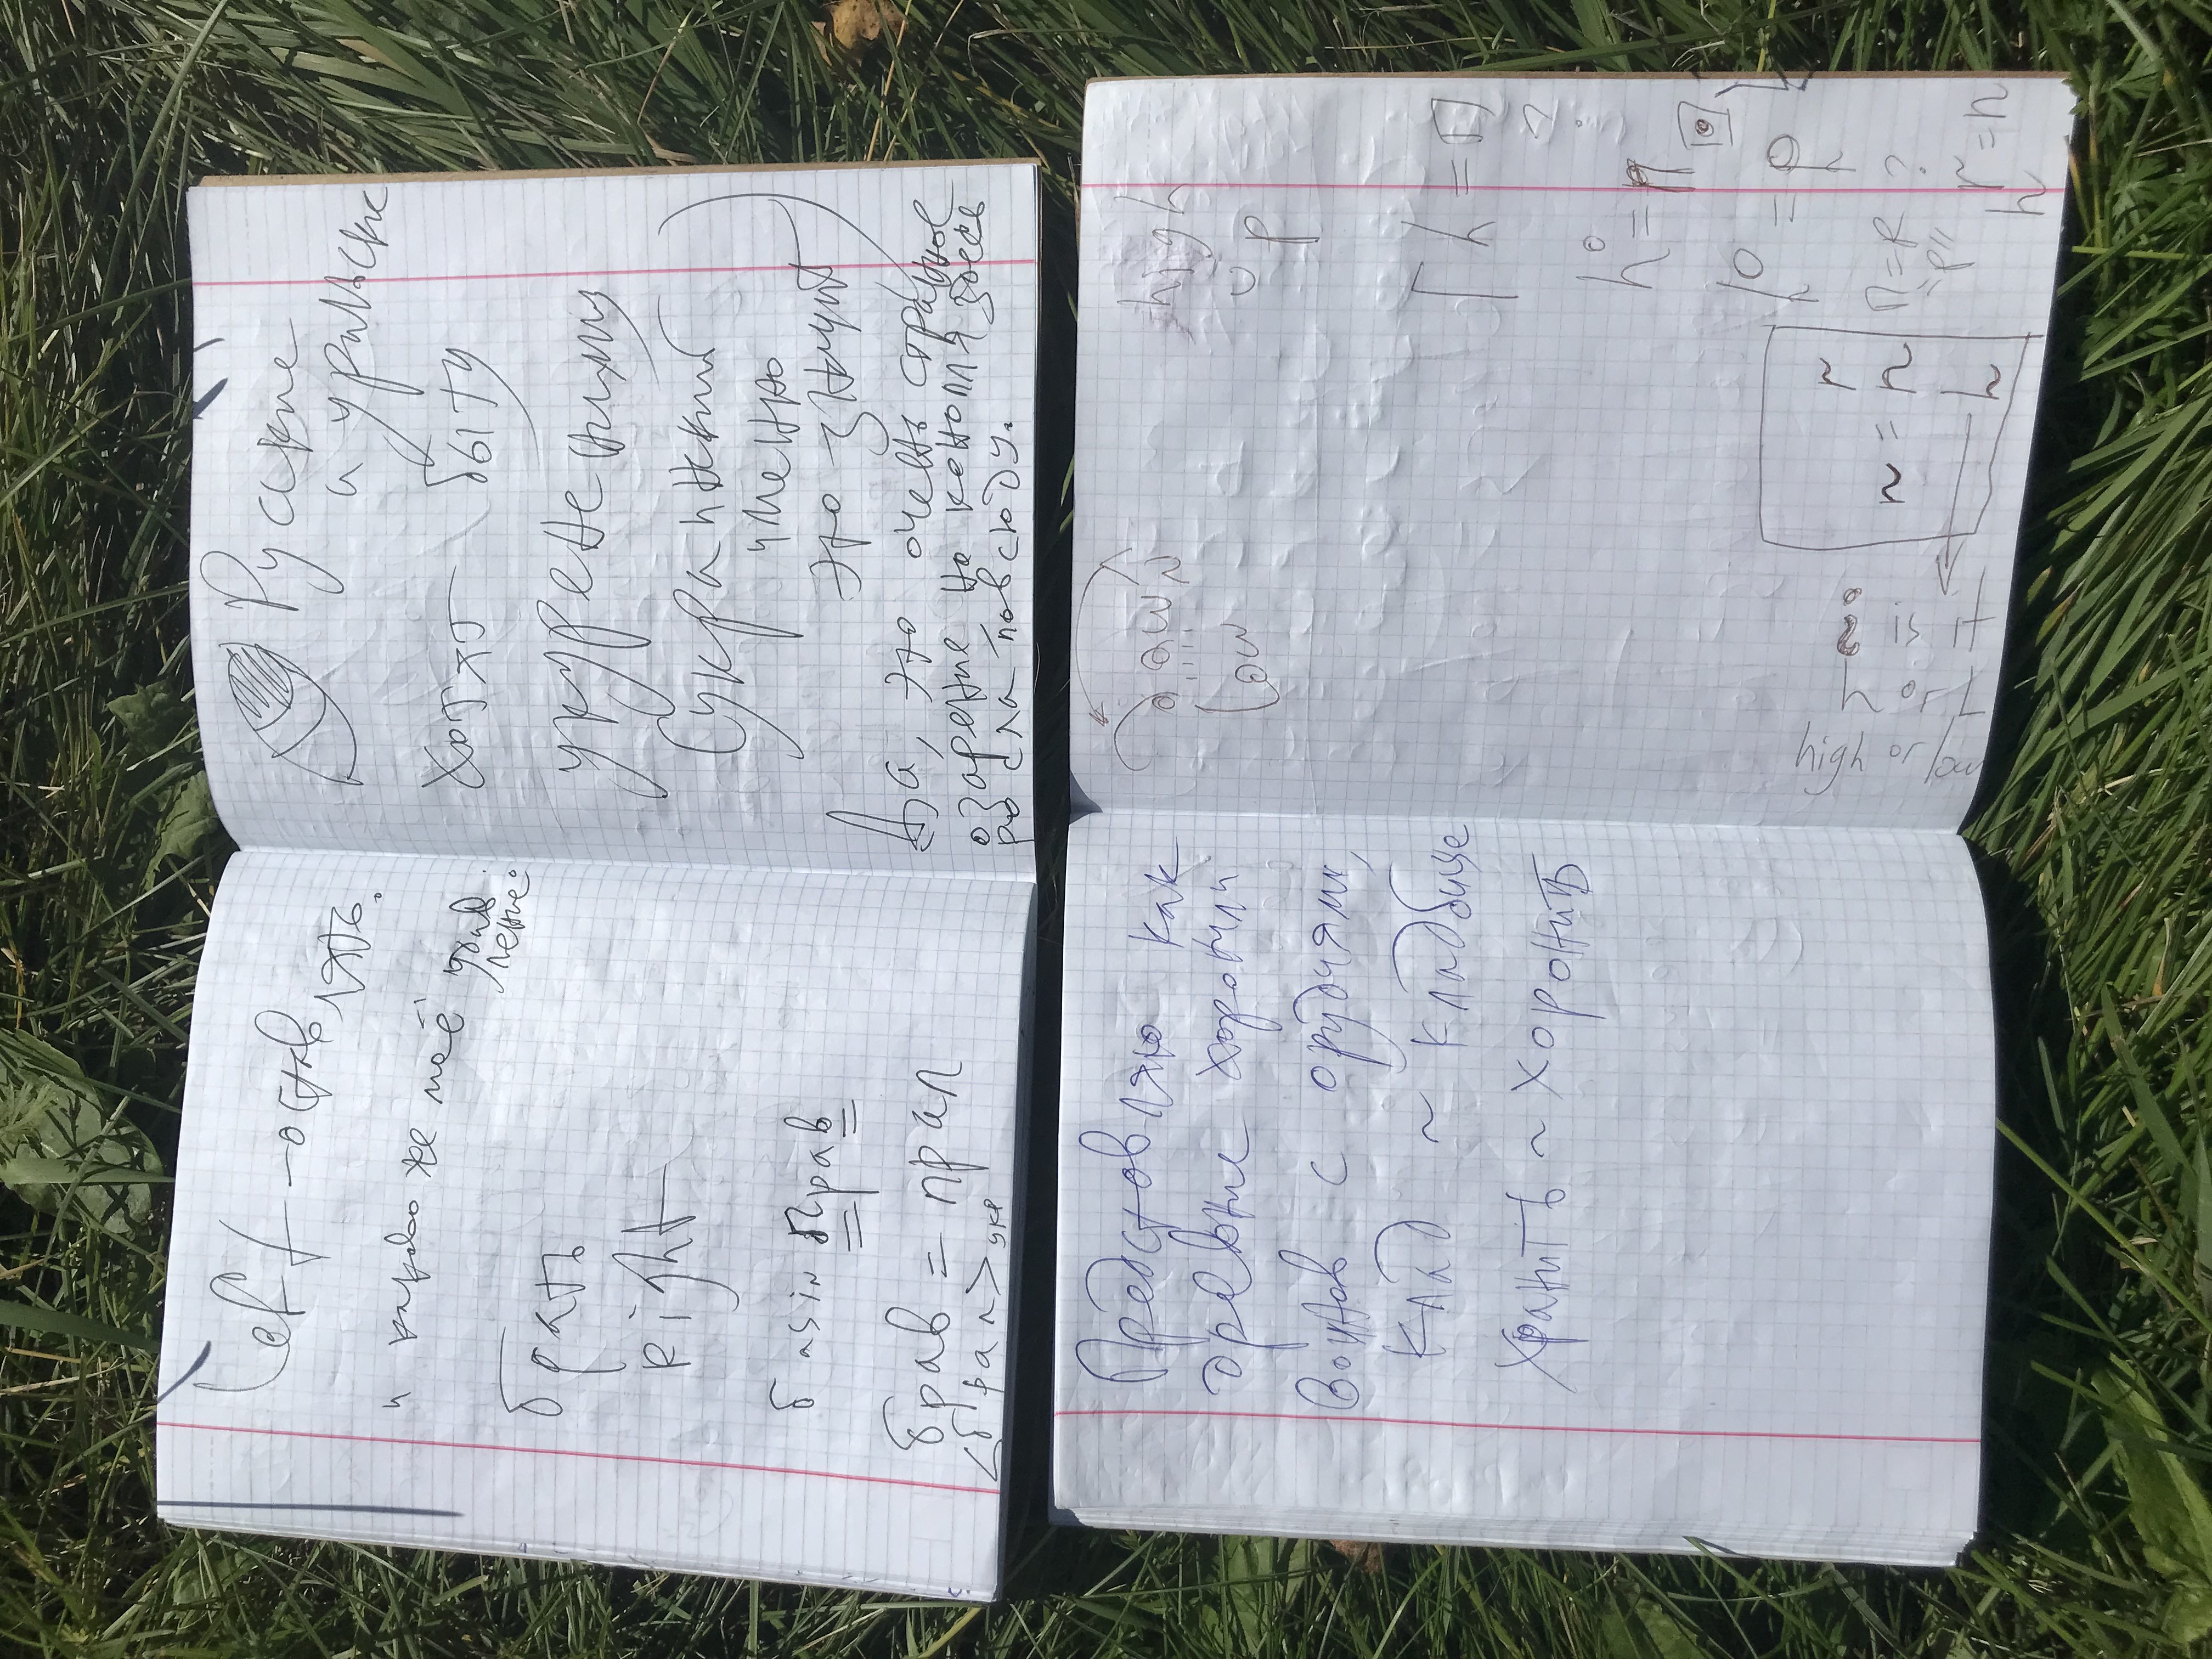 Left – оставлять.
и каково же моё удив
ление:
брать
Right
б as in Прав
брав = прал
<брал>укр
Русские
а уральские
хотят быту
укурене
(украинский
именно
это значит)
Да, это очень странное
озарение, но конопля здесь
росла повсюду.
Представляю как
древние хоронили
воинов с орудиями,
клад ~ кладбище
хранить ~ хоронить
down
low
high
up
Г h = П
h° = п
n = n
r
h
П = R ?
"р"
r = n
h
high or low
h or L
is it